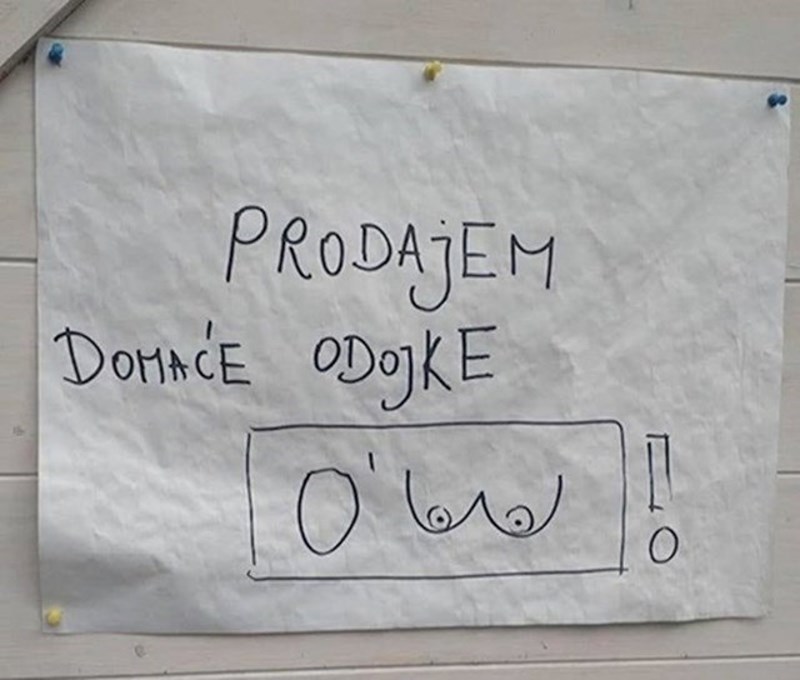 PRODAJEM
DOMAĆE ODOJKE
O'
!